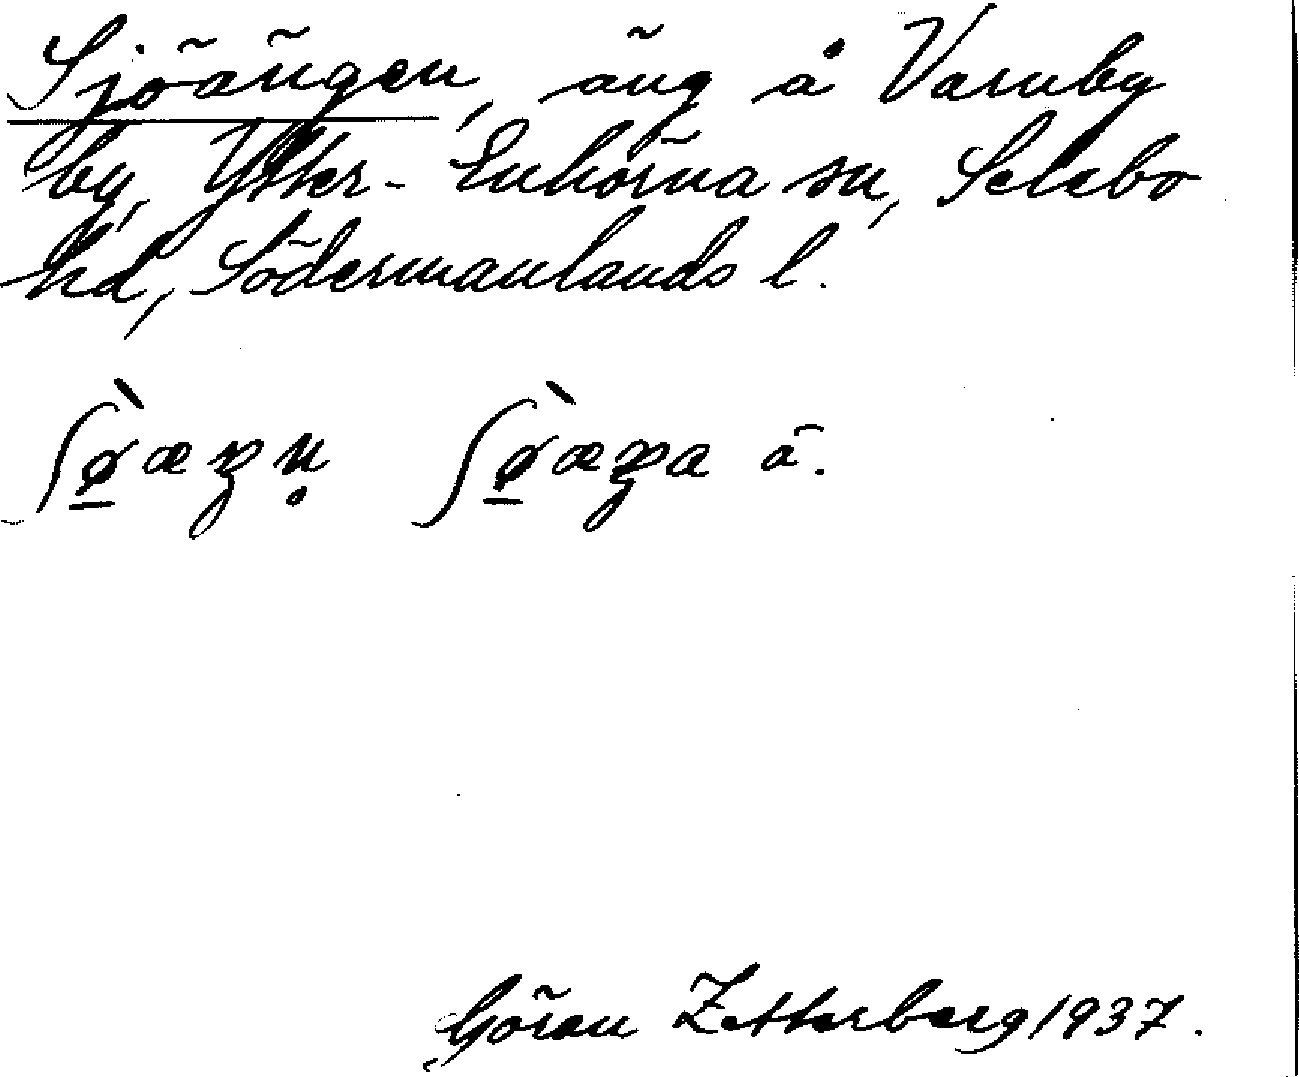 Sjöängen, äng å Varnby
by, Ytter-Enhörna sn, Selebo
hd, Södermanlands l.
Göran Zetterberg 1937.